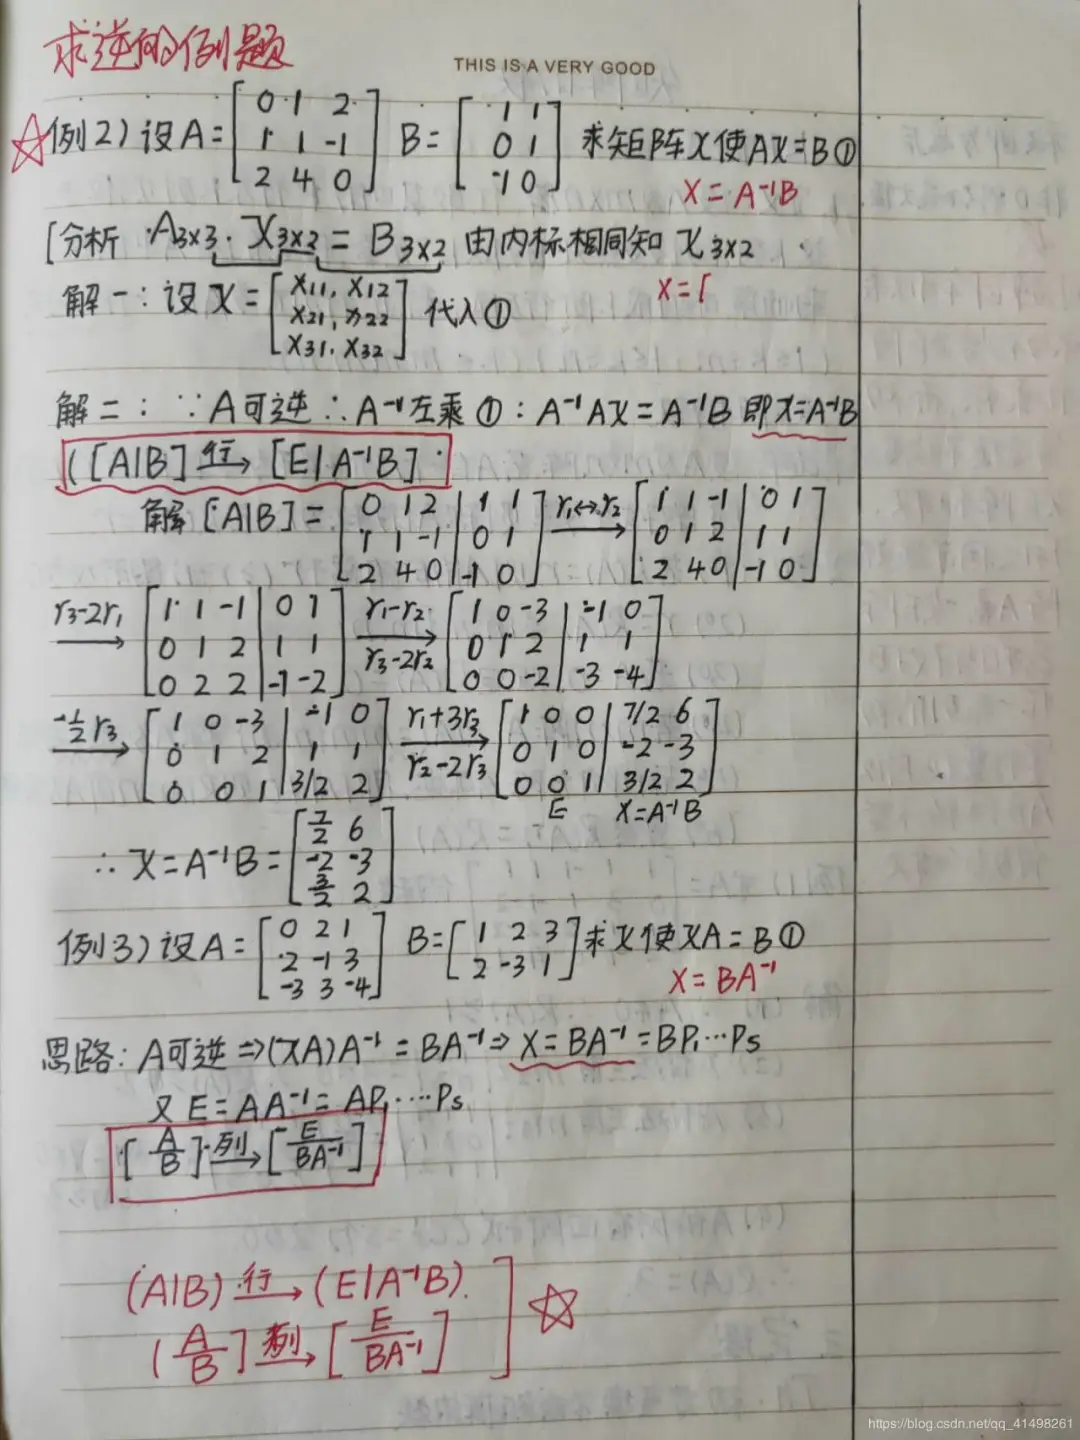 求逆的例题
THIS IS A VERY GOOD
☆例2) 设A=[0 1 2; 1 1 -1; 2 4 0] B=[1 1; 0 1; -1 0] 求矩阵X使AX=B①
X=A⁻¹B
[分析 A₃ₓ₃·X₃ₓ₂=B₃ₓ₂ 由内标相同知 X₃ₓ₂
X=[
解一:设X=[x₁₁, x₁₂; x₂₁, x₂₂; x₃₁, x₃₂] 代入①
解二:∵A可逆∴A⁻¹左乘①:A⁻¹AX=A⁻¹B 即X=A⁻¹B
([A|B] 行→ [E|A⁻¹B]
解[A|B]=[0 1 2 | 1 1; 1 1 -1 | 0 1; 2 4 0 | -1 0] r₁↔r₂→ [1 1 -1 | 0 1; 0 1 2 | 1 1; 2 4 0 | -1 0]
r₃-2r₁→ [1 1 -1 | 0 1; 0 1 2 | 1 1; 0 2 2 | -1 -2] r₁-r₂ r₃-2r₂→ [1 0 -3 | -1 0; 0 1 2 | 1 1; 0 0 -2 | -3 -4]
-1/2 r₃→ [1 0 -3 | -1 0; 0 1 2 | 1 1; 0 0 1 | 3/2 2] r₁+3r₃ r₂-2r₃→ [1 0 0 | 7/2 6; 0 1 0 | -2 -3; 0 0 1 | 3/2 2]
E X=A⁻¹B
∴X=A⁻¹B=[7/2 6; -2 -3; 3/2 2]
例3) 设A=[0 2 1; 2 -1 3; -3 3 -4] B=[1 2 3; 2 -3 1] 求X使XA=B①
X=BA⁻¹
思路:A可逆⇒(XA)A⁻¹=BA⁻¹⇒X=BA⁻¹=BP₁…Ps
又E=AA⁻¹=AP₁…Ps
[A/B] 列→ [E/BA⁻¹]
(A|B) 行→ (E|A⁻¹B).
(A/B] 列→ [E/BA⁻¹] ] ☆
https://blog.csdn.net/qq_41498261